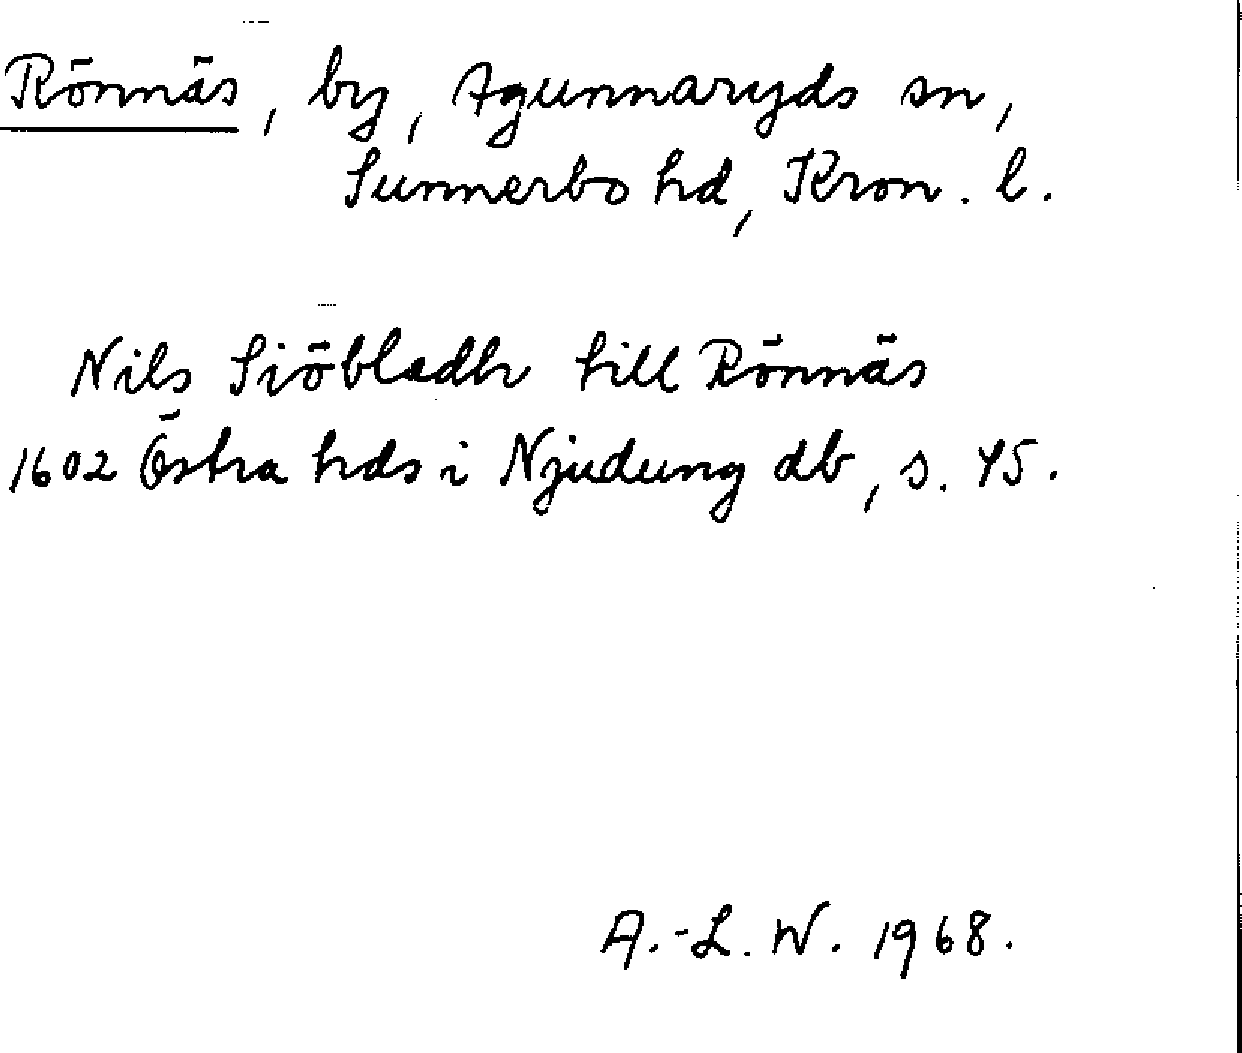 Rönnäs, by, Agunnaryds sn,
Sunnerbo hd, Kron. l.
Nils Siöbladh till Rönnäs
1602 Östra hds i Njudung db, s. 45.
A.-L. W. 1968.